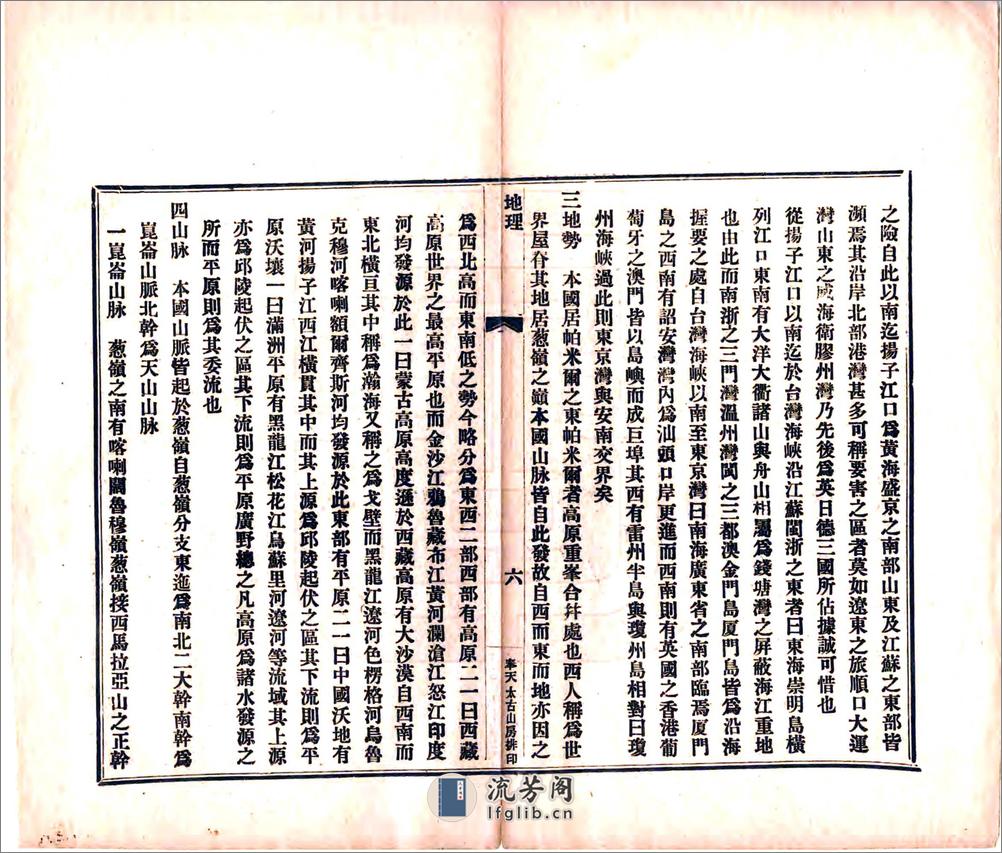 之險自此以南迄揚子江口爲黃海盛京之南部山東及江蘇之東部皆
瀕焉其沿岸北部港灣甚多可稱要害之區者莫如遼東之旅順口大連
灣山東之威海衛膠州灣乃先後爲英日德三國所佔據誠可惜也
從揚子江口以南迄於台灣海峽沿江蘇閩浙之東者曰東海崇明島橫
列江口東南有大洋大衢諸山與舟山相屬爲錢塘灣之屏蔽海江重地
也由此而南浙之三門灣溫州灣閩之三都澳金門島厦門島皆爲沿海
握要之處自台灣海峽以南至東京灣曰南海廣東省之南部臨焉厦門
島之西南有詔安灣灣內爲汕頭口岸更進而西南則有英國之香港葡
萄牙之澳門皆以島嶼而成巨埠其西有雷州半島與瓊州島相對曰瓊
州海峽過此則東京灣與安南交界矣
三地勢　本國居帕米爾之東帕米爾者高原重峯合幷處也西人稱爲世
界屋脊其地居葱嶺之巔本國山脉皆自此發故自西而東而地亦因之
地理
六
奉天太古山房排印
爲西北高而東南低之勢今略分爲東西二部西部有高原二一曰西藏
高原世界之最高平原也而金沙江鴉魯藏布江黃河瀾滄江怒江印度
河均發源於此一曰蒙古高原高度遜於西藏高原有大沙漠自西南而
東北橫亘其中稱爲瀚海又稱之爲戈壁而黑龍江遼河色楞格河烏魯
克穆河喀喇額爾齊斯河均發源於此東部有平原二一曰中國沃地有
黃河揚子江西江橫貫其中而其上源爲邱陵起伏之區其下流則爲平
原沃壤一曰滿洲平原有黑龍江松花江烏蘇里河遼河等流域其上源
亦爲邱陵起伏之區其下流則爲平原廣野總之凡高原爲諸水發源之
所而平原則爲其委流也
四山脉　本國山脈皆起於葱嶺自葱嶺分支東迤爲南北二大幹南幹爲
崑崙山脈北幹爲天山山脉
一崑崙山脉　葱嶺之南有喀喇闊魯穆嶺葱嶺接西馬拉亞山之正幹
流芳阁
lfglib.cn